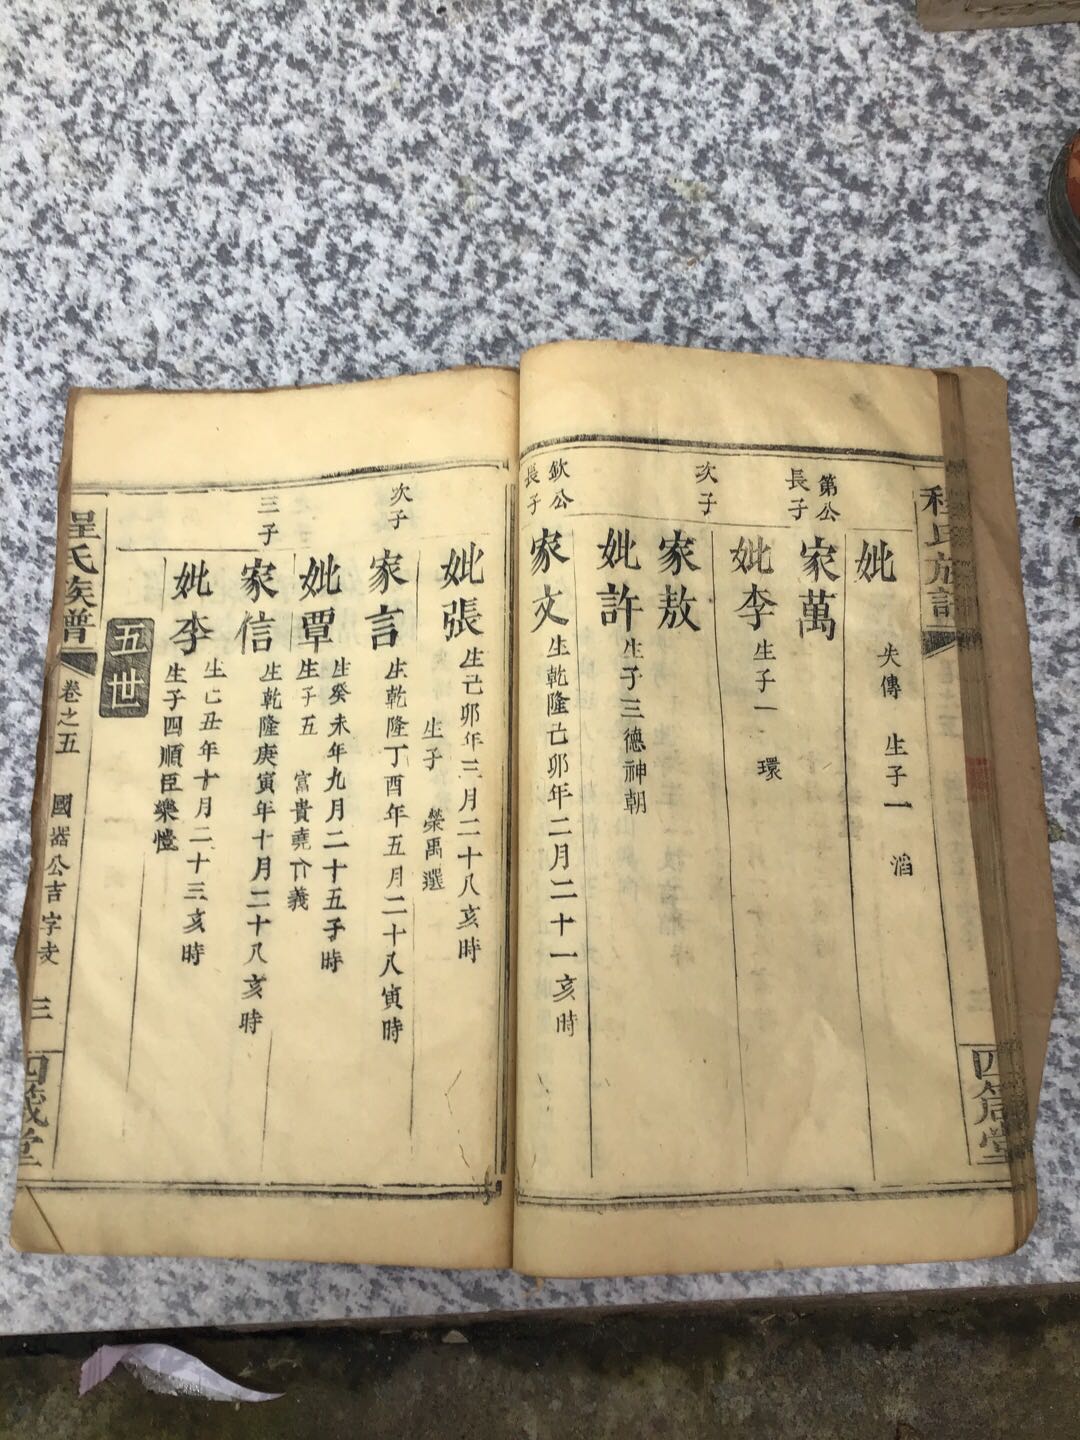 程氏族譜
四箴堂
妣
失傳 生子一 滔
第公
長子
家萬
妣李
生子一 環
次子
家敖
妣許
生子三德神朝
欽公
長子
家文
生乾隆己卯年二月二十一亥時
妣張
生己卯年三月二十八亥時
生子 榮禹選
次子
家言
生乾隆丁酉年五月二十八寅時
妣覃
生癸未年九月二十五子時
生子五 富貴堯介義
三子
家信
生乾隆庚寅年十月二十八亥時
妣李
生乙丑年十月二十三亥時
生子四順臣樂
五世
程氏族譜
卷之五
國器公吉字支
三
四箴堂